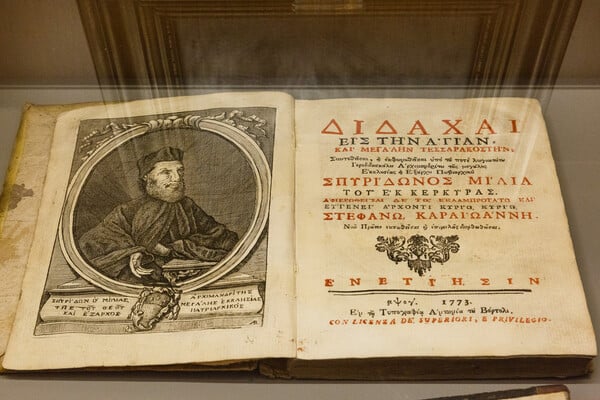 ΣΠΥΡΙΔΩΝ Ὁ ΜΙΛΙΑΣ
ΤΗΣ ΤΟΥ ΘΕΟΥ
ΚΑΙ ΕΞΑΡΧΟΣ
ΑΡΧΙΜΑΝΔΡΙΤΗΣ
ΜΕΓΑΛΗΣ ΕΚΚΛΗΣΙΑΣ
ΠΑΤΡΙΑΡΧΙΚΟΣ
ΔΙΔΑΧΑΙ
ΕΙΣ ΤΗΝ ΑΓΙΑΝ,
ΚΑΙ ΜΕΓΑΛΗΝ ΤΕΣΣΑΡΑΚΟΣΤΗΝ,
Συντεθεῖσαι, ἠ ἐκφωνηθεῖσαι ὑπὸ τοῦ ποτὲ λογιωτάτου
Ἱεροδιδασκάλου Ἀρχιμανδρίτου τῆς μεγάλης
Ἐκκλησίας ἠ Ἐξάρχου Πατριαρχικοῦ
ΣΠΥΡΙΔΩΝΟΣ ΜΙΛΙΑ
ΤΟΥ ΕΚ ΚΕΡΚΥΡΑΣ.
ΑΦΙΕΡΩΘΕΙΣΑΙ ΔΕ ΤΩ ΕΚΛΑΜΠΡΟΤΑΤΩ ΚΑΙ
ΕΥΓΕΝΕΙ ΑΡΧΟΝΤΙ ΚΥΡΙΩ, ΚΥΡΙΩ
ΣΤΕΦΑΝΩ ΚΑΡΑΓΩΑΝΝΗ.
Νῦν Πρῶτον τυπωθεῖσαι ἠ ἐπιμελῶς διορθωθεῖσαι.
ΕΝΕΤΙΗΣΙΝ
αψογ. 1773.
Ἐν τῇ Τυπογραφίᾳ Ἀντωνίου τοῦ Βόρτολι.
CON LICENZA DE' SUPERIORI, E PRIVILEGIO.